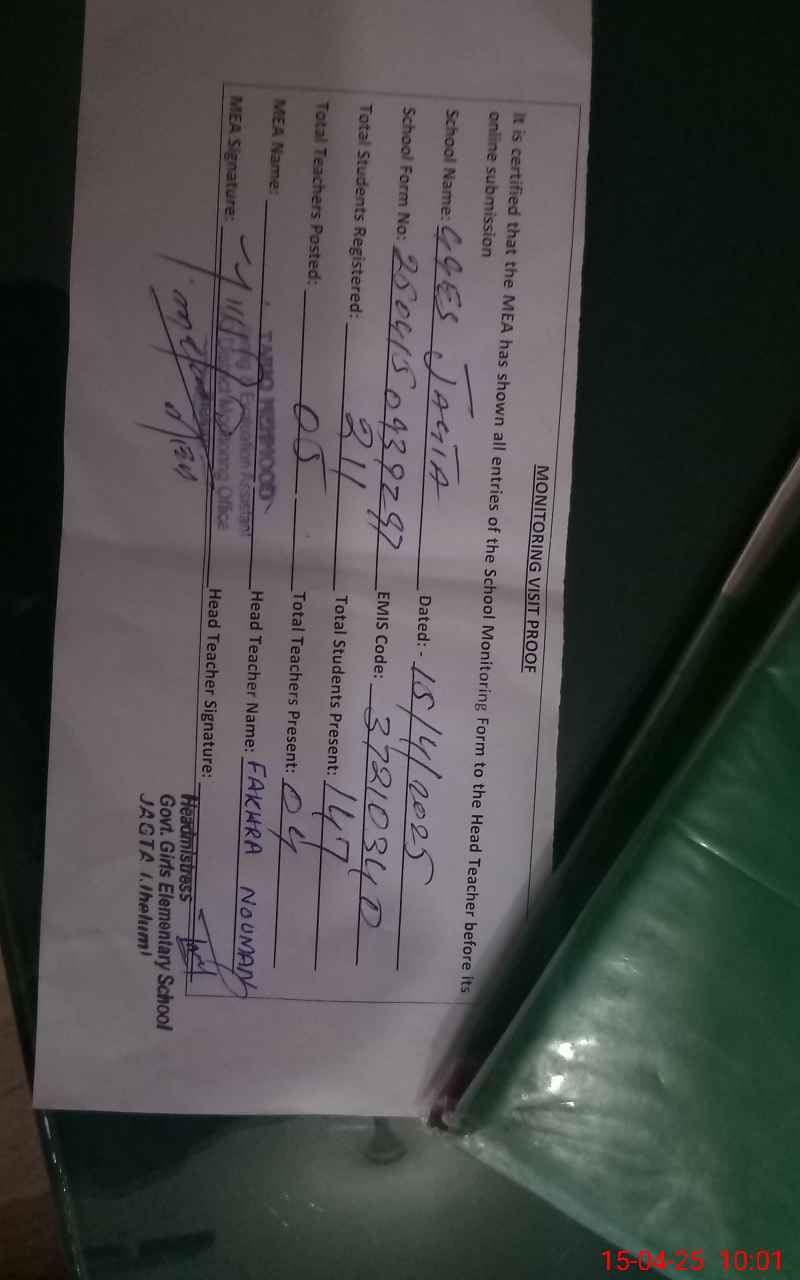 MONITORING VISIT PROOF
It is certified that the MEA has shown all entries of the School Monitoring Form to the Head Teacher before its
online submission
School Name: GGES JAGTA Dated: - 15/4/2025
School Form No: 250415 0939297 EMIS Code: 37210340
Total Students Registered: 211 Total Students Present: 147
Total Teachers Posted: 05 Total Teachers Present: 04
MEA Name: Head Teacher Name: FAKHRA NOUMAN
MEA Signature: Head Teacher Signature:
Evaluation Assistant
Monitoring Office
Headmistress
Govt. Girls Elementary School
JAGTA (Jhelum)
15-04-25 10:01